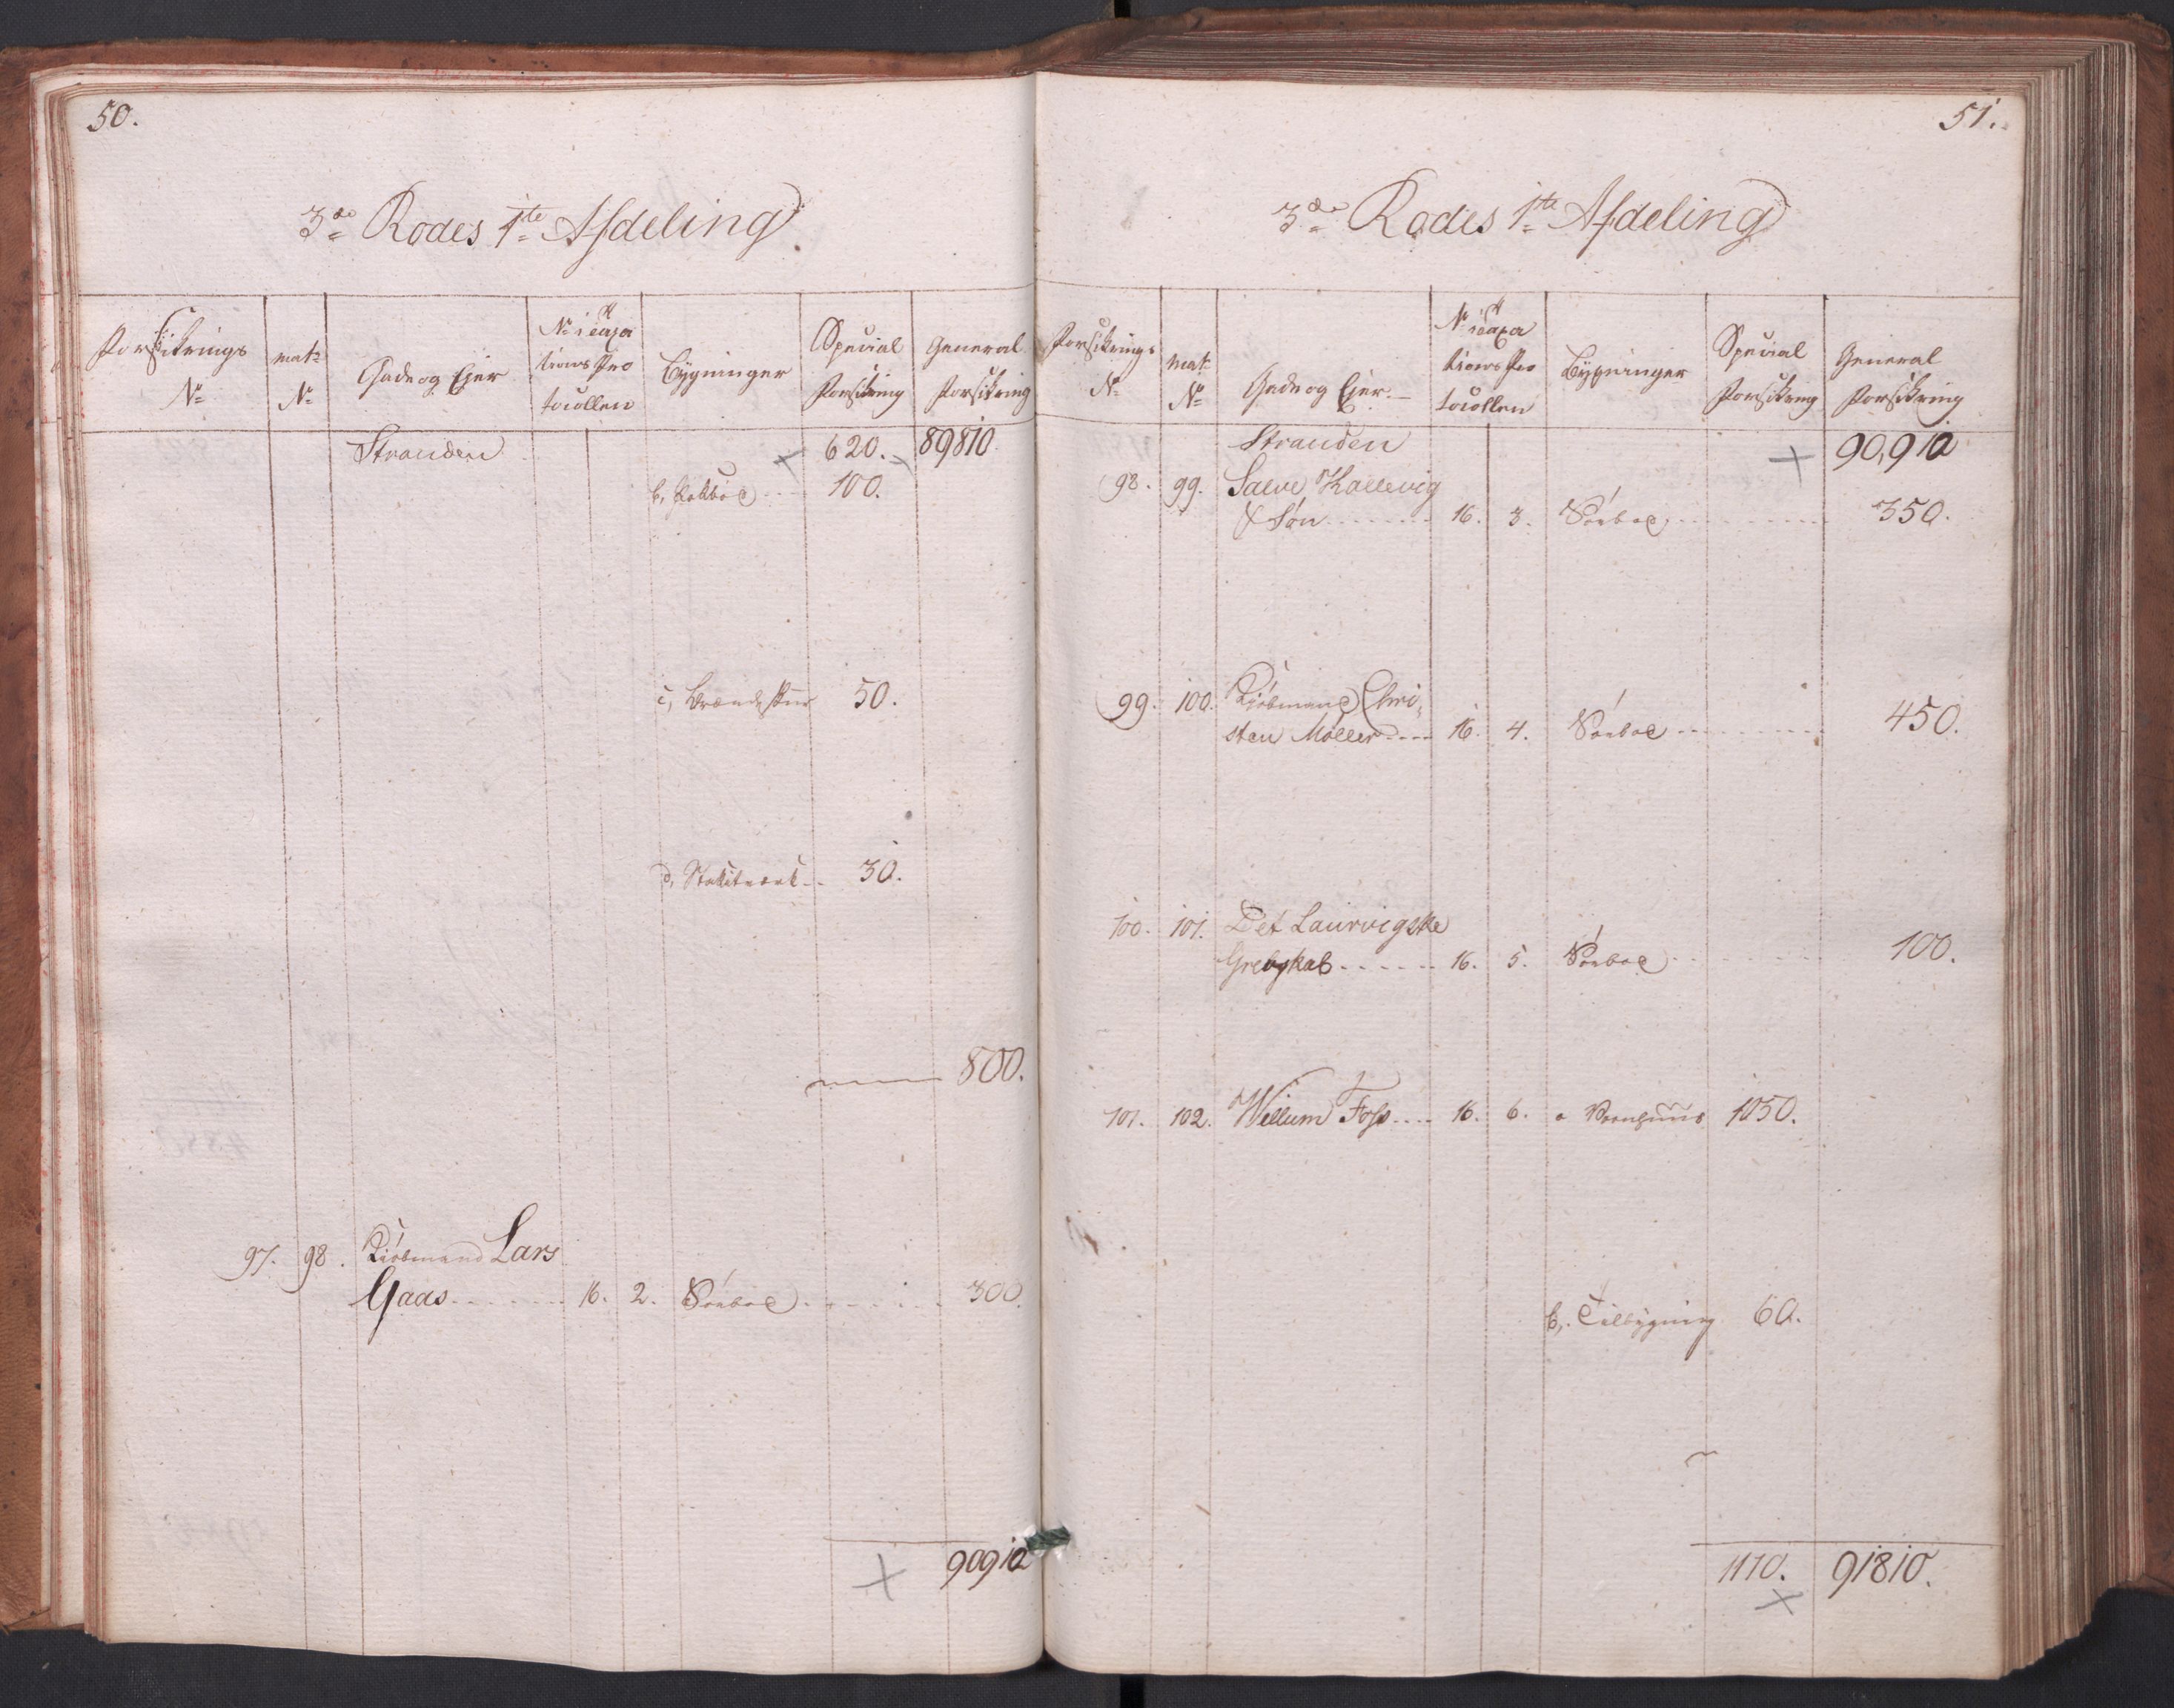 50.
3de Rodes 1te Afdeling
Forsikrings No
mat: No
Gade og Ejer
No i Taxa
tions Pro
tocollen
Bygninger
Special Forsikring
General Forsikring
Stranden 620. 89810.
b, 100.
c, Brændeskuur 50.
d, Stakitværk 30.
800.
97. 98. Kiøbmand Lars
Gaas 16. 2. Søeboe 300.
90910
51.
3de Rodes 1te Afdeling
Forsikrings No
mat: No
Gade og Ejer
No i Taxa
tions Pro
tocollen
Bygninger
Special Forsikring
General Forsikring
Stranden 90,910
98. 99. Salve Kallevig
& Søn 16. 3. Søeboe 350.
99. 100. Kiøbmand Chri,
sten Møller 16. 4. Søeboe 450.
100. 101. Det Laurvigske
Grevskab 16. 5. Søeboe 100.
101. 102. Willum Foss 16. 6. a Vaanhuus 1050.
b, Tilbygning 60.
1110. 91810.